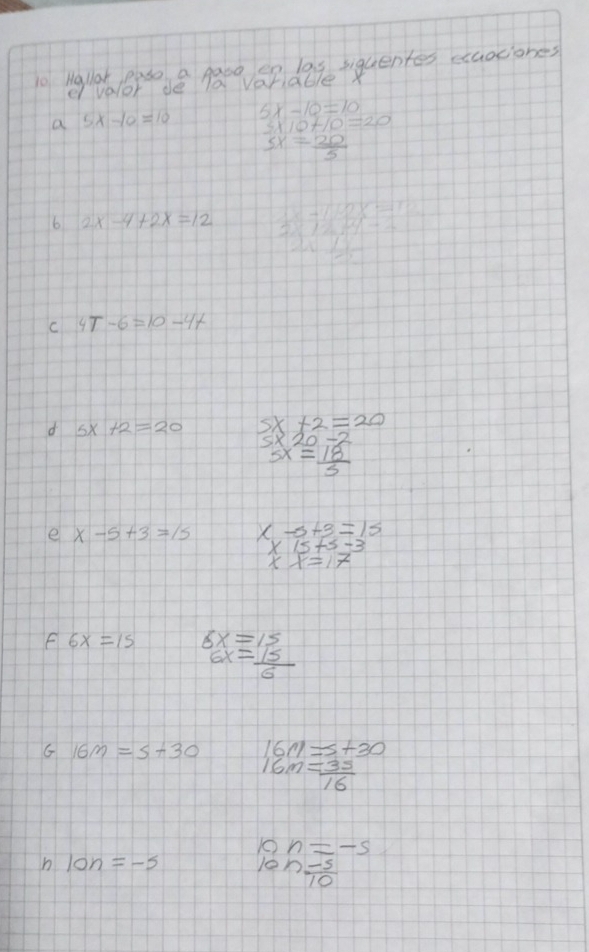 10 Hallar paso a paso en las siguientes ecuaciones
el valor de la variable x
a 5x-10=10
5x-10=10
5x10+10=20
5x=20
5
b 2x-4+2x=12
c 4T-6=10-4t
d 5x+2=20
5x+2=20
5x20-2
5x=18
5
e x-5+3=15
x-5+3=15
x 15+5-3
x x=17
F 6x=15
6x=15
6x=15
6
G 16m=5+30
16m=5+30
16m=35
16
h 10n=-5
10n=-5
10n-5
10